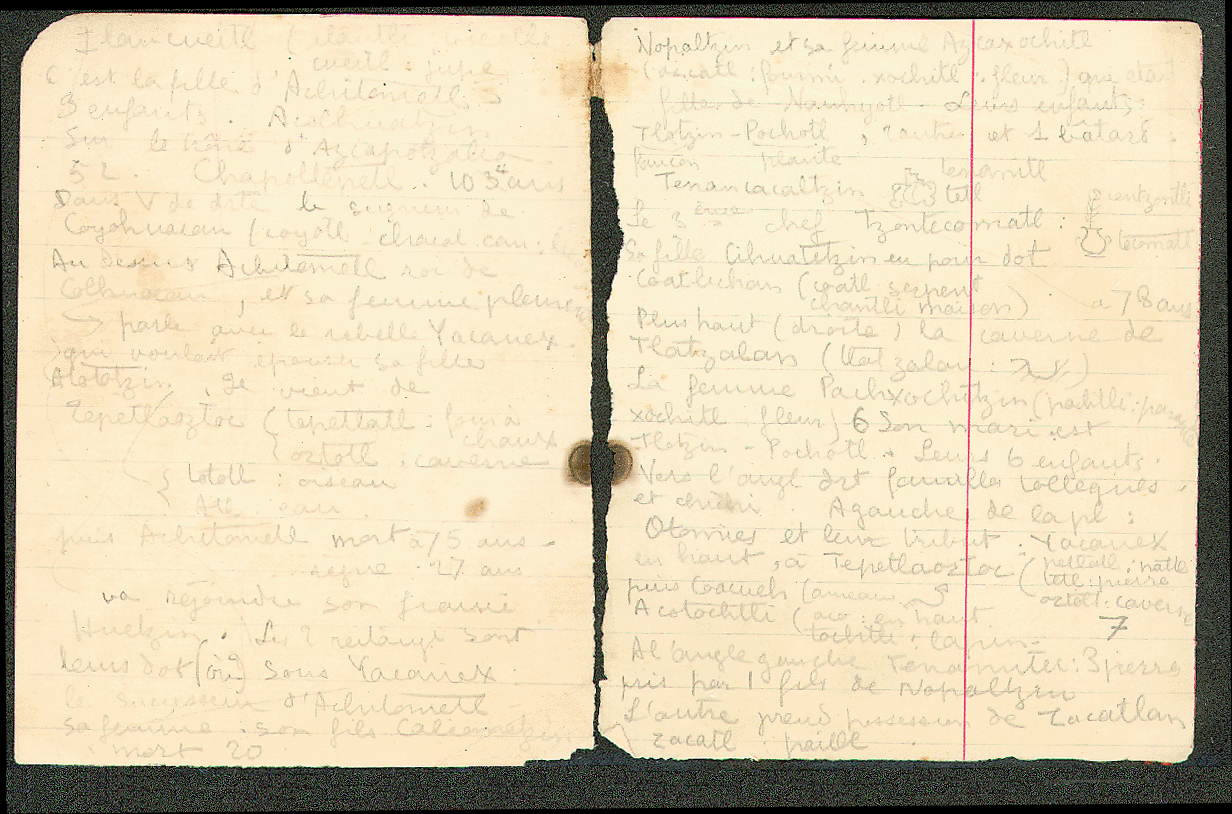 Ilancueitl ( vieille
cueitl : jupe
C'est la fille d'Achitometl
3 enfants. Acolhuatzin
Sur le d'Azcapotzalco
52. Chapoltepetl. 103 ans
Dans V de dte le seigneur de
Coyohuacan (coyotl chacal can :
Au dessus Achitometl roi de
Colhuacan, et sa femme
→ parle avec le rebelle Yacanex.
qui voulait épouser sa fille
Atototzin. Je vient de
Tepetlaoztoc (tepetlatl : four à
chaux
oztotl . caverne
{ tototl : oiseau
Atl . eau.
puis Achitometl mort à 75 ans -
règne 27 ans
va rejoindre son fiancé
Huetzin. Les 2 sont
leurs dot (où) sous Yacanex.
le successeur d'Achitometl
sa femme . son fils
mort 20
Nopaltzin et sa femme Azcaxochitl
(azcatl : fourmi . xochitl . fleur) que était
fille de . Leurs enfants :
Tlotzin-Pochotl, l'autre et 1 bâtard :
faucon plante tenamitl
Tenancacaltzin tetl
tzontli
Le 3 ème chef Tzontecomatl :
tecomatl
Sa fille Cihuatetzin eu pour dot
Coatlichan (coatl serpent
chantli maison) a 78 ans
Plus haut (droite) la caverne de
Tlatzalan (tlatzalan : )
La femme Pachxochitzin (pachtli :
xochitl fleur) 6 Son mari est
Tlotzin - Pochotl. Leurs 6 enfants.
Vers l'angl drt famille
et . A gauche de la pl :
Otomies et leur tribut . Yacanex
en haut, à Tepetlaoztoc (petlatl : natte
tetl : pierre
oztotl : caverne
puis Coacuech (anneau
Acotochtli (aco : en haut
tochtli : lapin- 7
A l'angle gauche Tenamitec : 3 pierre
pris par 1 fils de Nopaltzin
L'autre prend possession de Zacatlan
zacatl : paille .